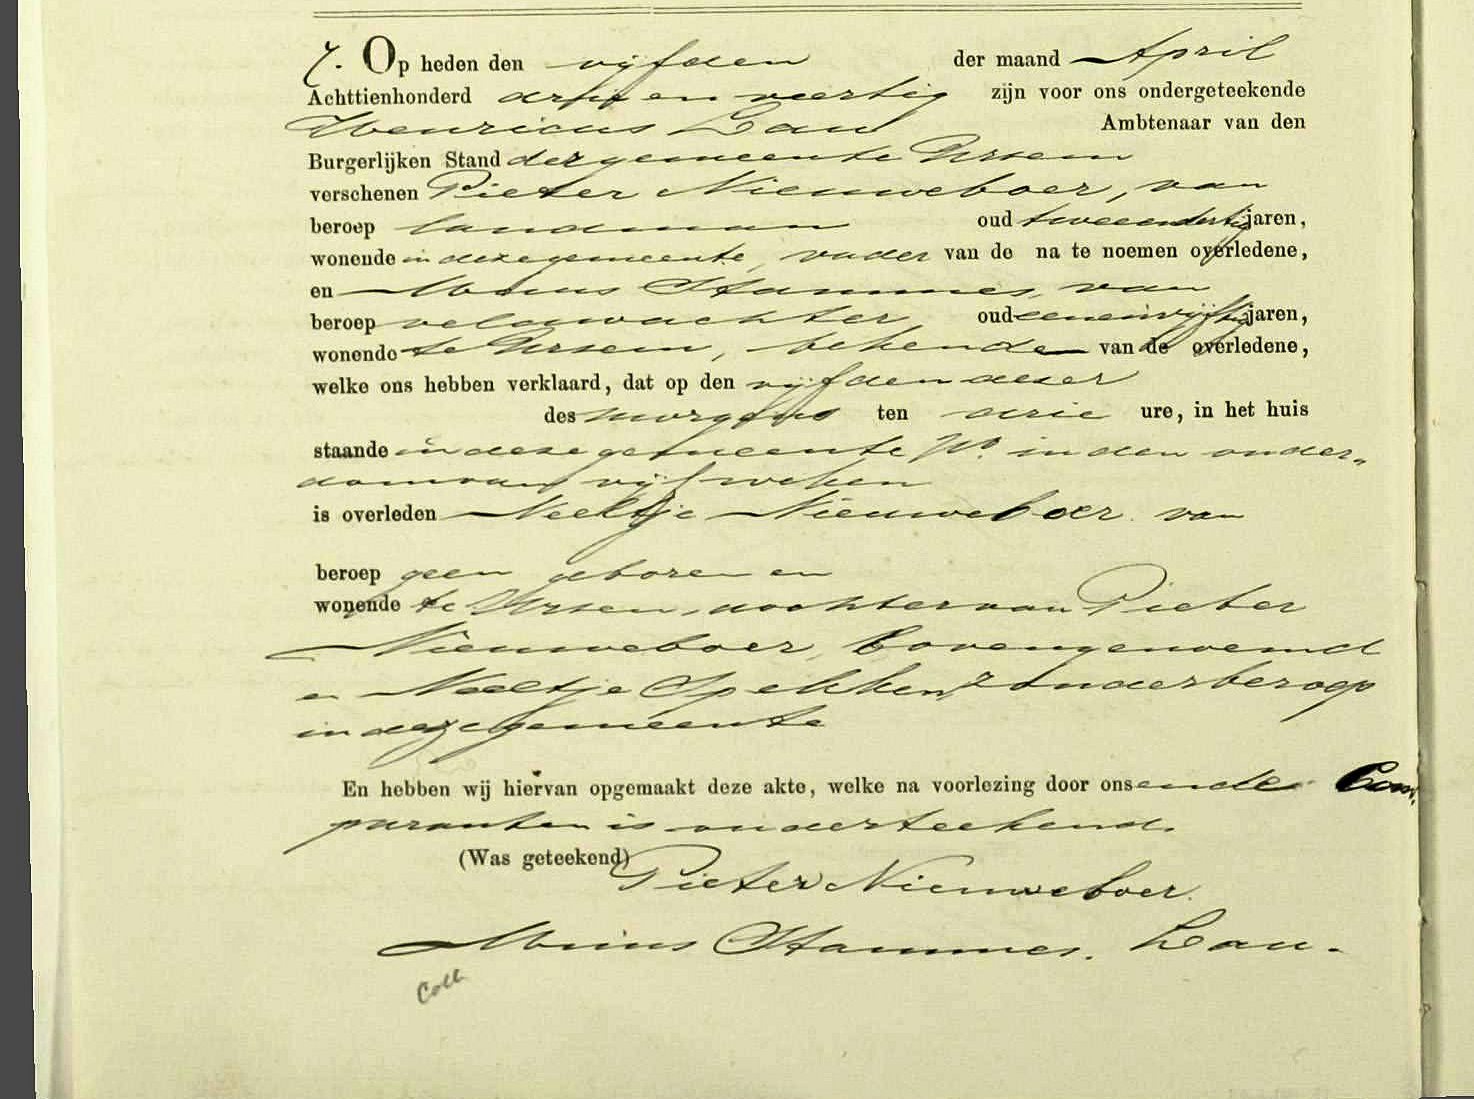 7. Op heden den vijfden der maand April
Achttienhonderd drie en veertig zijn voor ons ondergeteekende
Henricus Lau Ambtenaar van den
Burgerlijken Stand der gemeente Ursem
verschenen Pieter Nieuweboer, van
beroep landman oud tweeendertig jaren,
wonende in deze gemeente, vader van de na te noemen overledene,
en Meinus Stammes, van
beroep veldwachter oud eenenvijftig jaren,
wonende te Ursem, bekende van de overledene,
welke ons hebben verklaard, dat op den vijfden dezer
des morgens ten drie ure, in het huis
staande in deze gemeente No. in den ouder„
dom van vijf weken
is overleden Neeltje Nieuweboer van
beroep geen geboren en
wonende te Ursem, dochter van Pieter
Nieuweboer, bovengenoemd
en Neeltje Spekken, zonder beroep
in deze gemeente
En hebben wij hiervan opgemaakt deze akte, welke na voorlezing door ons en de Com„
paranten is onderteekend.
(Was geteekend) Pieter Nieuweboer.
Meinus Stammes. Lau.
Coll